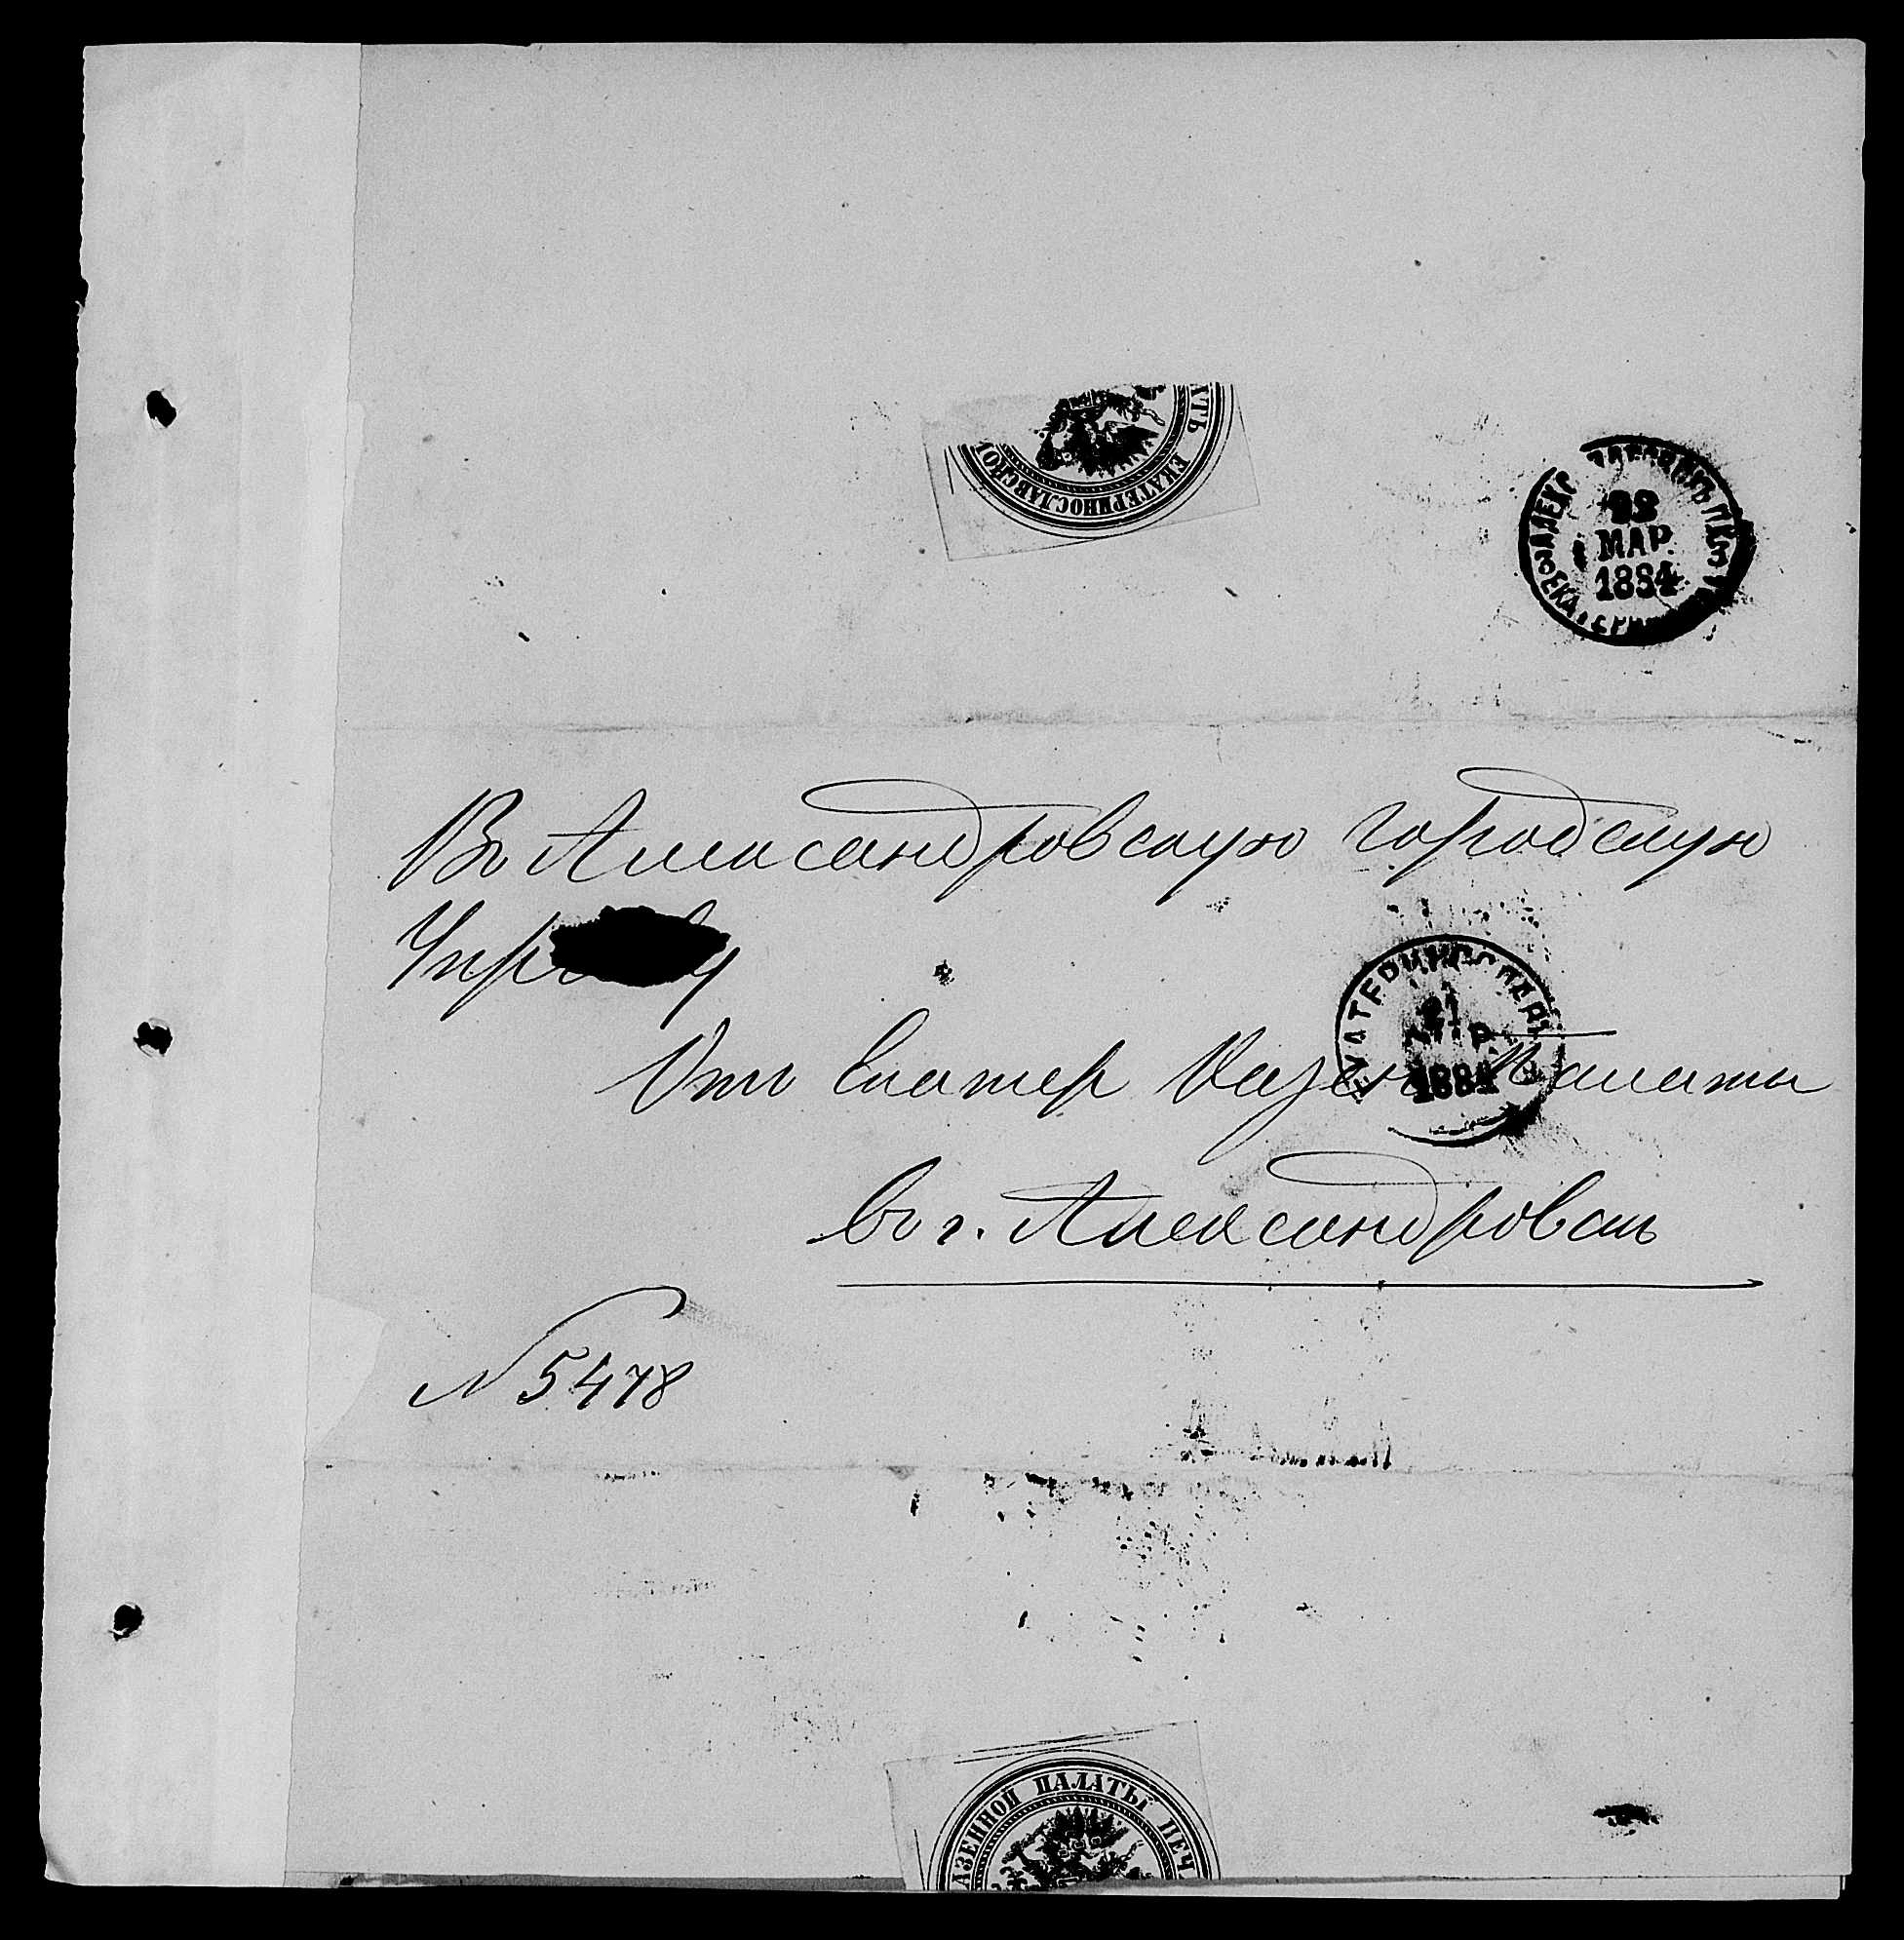 АТЬ ЕКАТЕРИНОСЛАВСКОЙ
22
МАР.
1884
Въ Александровскую городскую
Управу
ЕКАТЕРИНОСЛАВ
21
МАР.
1884
Отъ Екатер Казен Палаты
въ г. Александровскъ
N 5478
АЗЕННОЙ ПАЛАТЫ ПЕЧ